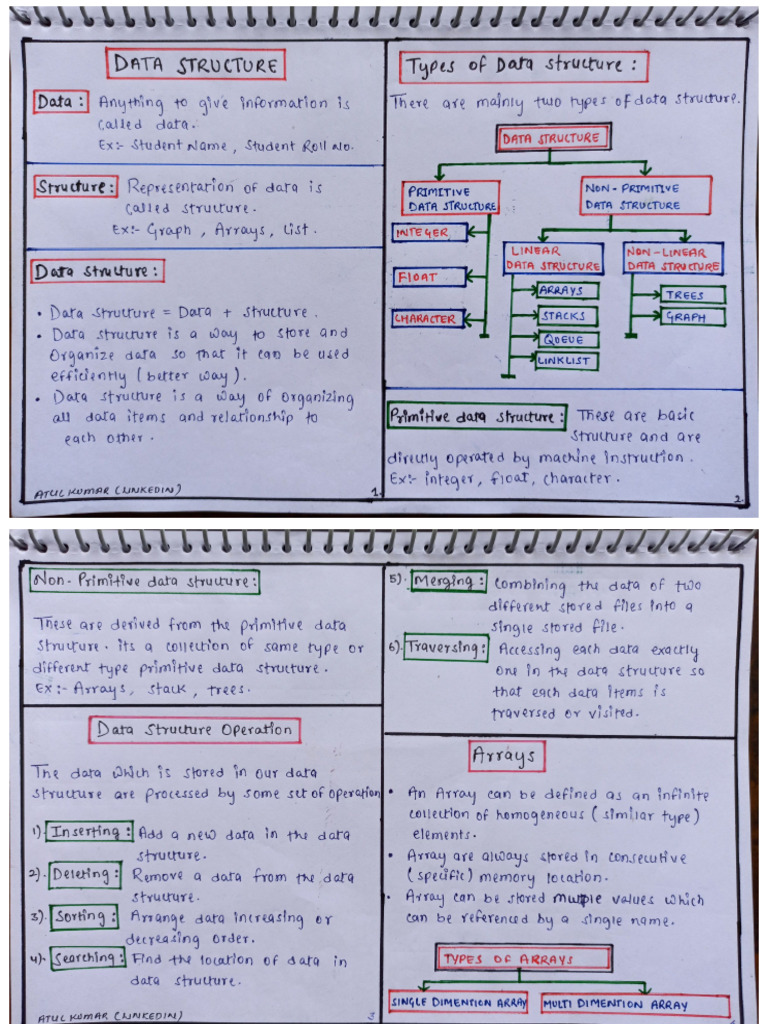 DATA STRUCTURE
Data: Anything to give information is
called data.
Ex:- Student Name, Student Roll No.
Structure: Representation of data is
called structure.
Ex:- Graph, Arrays, List.
Data structure:
• Data structure = Data + structure.
• Data structure is a way to store and
Organize data so that it can be used
efficiently (better way).
• Data structure is a way of organizing
all data items and relationship to
each other.
ATUL KUMAR (LINKEDIN)
1.
Types of Data structure:
There are mainly two types of data structure.
DATA STRUCTURE
PRIMITIVE
DATA STRUCTURE
INTEGER
FLOAT
CHARACTER
NON-PRIMITIVE
DATA STRUCTURE
LINEAR
DATA STRUCTURE
ARRAYS
STACKS
QUEUE
LINKLIST
NON-LINEAR
DATA STRUCTURE
TREES
GRAPH
Primitive data structure: These are basic
structure and are
directly operated by machine instruction.
Ex:- integer, float, character.
2.
Non-Primitive data structure:
These are derived from the primitive data
structure. its a collection of same type or
different type primitive data structure.
Ex:- Arrays, stack, trees.
Data Structure Operation
The data which is stored in our data
structure are processed by some set of operation
1). Inserting: Add a new data in the data
structure.
2). Deleting: Remove a data from the data
structure.
3). Sorting: Arrange data increasing or
decreasing order.
4). Searching: Find the location of data in
data structure.
ATUL KUMAR (LINKEDIN)
3
5). Merging: Combining the data of two
different stored files into a
single stored file.
6). Traversing: Accessing each data exactly
one in the data structure so
that each data items is
traversed or visited.
Arrays
• An Array can be defined as an infinite
collection of homogeneous (similar type)
elements.
• Array are always stored in consecutive
(specific) memory location.
• Array can be stored multiple values which
can be referenced by a single name.
TYPES OF ARRAYS
SINGLE DIMENTION ARRAY
MULTI DIMENTION ARRAY